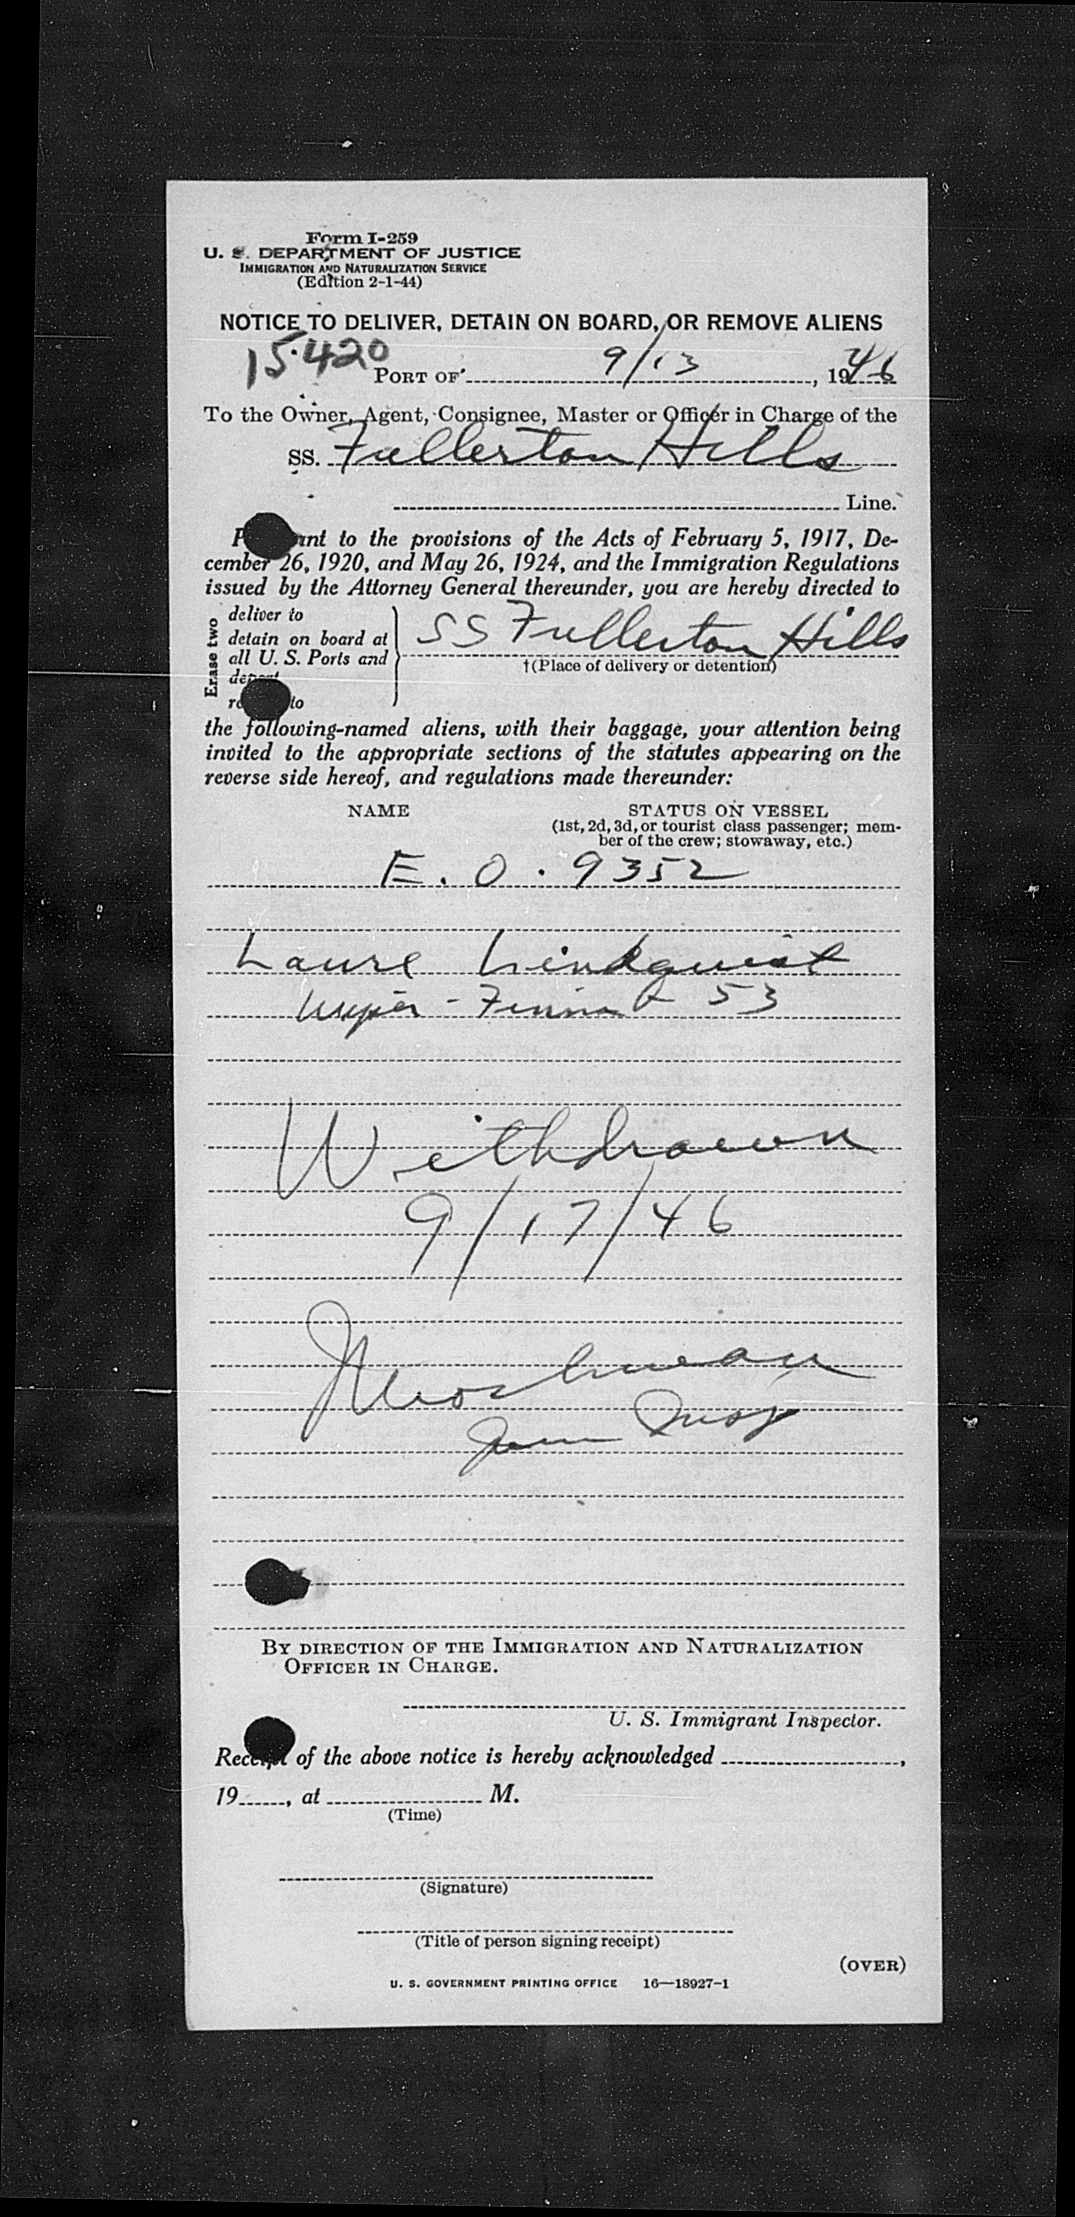 Form I-259
U. S. DEPARTMENT OF JUSTICE
IMMIGRATION AND NATURALIZATION SERVICE
(Edition 2-1-44)
NOTICE TO DELIVER, DETAIN ON BOARD, OR REMOVE ALIENS
15.420
PORT OF 9/13, 1946
To the Owner, Agent, Consignee, Master or Officer in Charge of the
SS. Fullerton Hills
Line.
to the provisions of the Acts of February 5, 1917, De-
cember 26, 1920, and May 26, 1924, and the Immigration Regulations
issued by the Attorney General thereunder, you are hereby directed to
Erase two
deliver to
detain on board at
all U. S. Ports and
to
SS Fullerton Hills
†(Place of delivery or detention)
the following-named aliens, with their baggage, your attention being
invited to the appropriate sections of the statutes appearing on the
reverse side hereof, and regulations made thereunder:
NAME STATUS ON VESSEL
(1st, 2d, 3d, or tourist class passenger; mem-
ber of the crew; stowaway, etc.)
E. O. 9352
Laure Lindquist
- 53
Withdrawn
9/17/46
BY DIRECTION OF THE IMMIGRATION AND NATURALIZATION
OFFICER IN CHARGE.
U. S. Immigrant Inspector.
Receipt of the above notice is hereby acknowledged ,
19 , at M.
(Time)
(Signature)
(Title of person signing receipt)
(OVER)
U. S. GOVERNMENT PRINTING OFFICE 16—18927-1